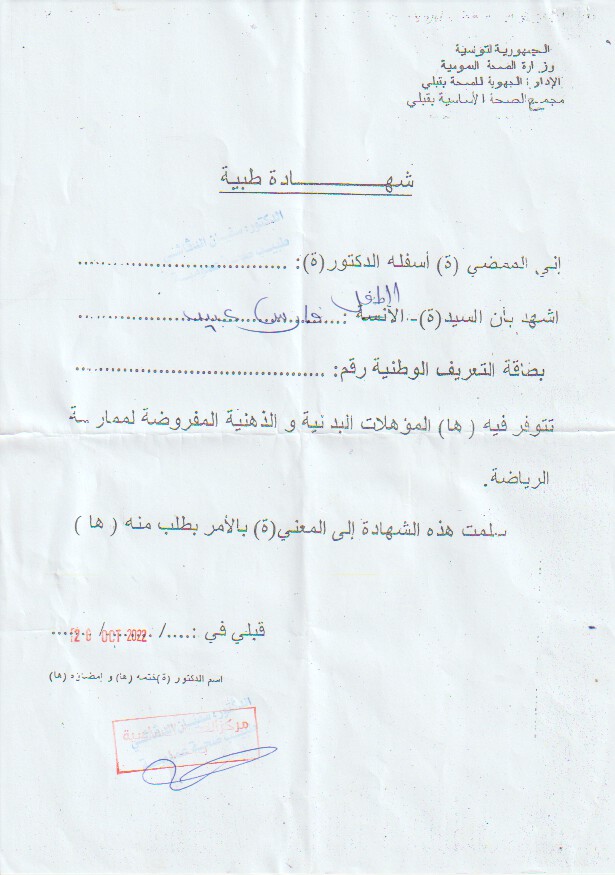 الجمهورية التونسية
وزارة الصحة العمومية
الإدارة الجهوية للصحة بقبلي
مجمع الصحة الأساسية بقبلي
شهـــــــــادة طبية
إني الممضي (ة) أسفله الدكتور(ة): ................................
الطفل
اشهد بأن السيد(ة)- الآنسة :........ فارس عبيد ........
بطاقة التعريف الوطنية رقم: ......................................
تتوفر فيه (ها) المؤهلات البدنية و الذهنية المفروضة لممارسة
الرياضة.
سلمت هذه الشهادة إلى المعني(ة) بالأمر بطلب منه (ها)
قبلي في :..../....../......
20 OCT 2022
اسم الدكتور (ة)ختمه (ها) و إمضاؤه (ها)
الدكتورة
مركز